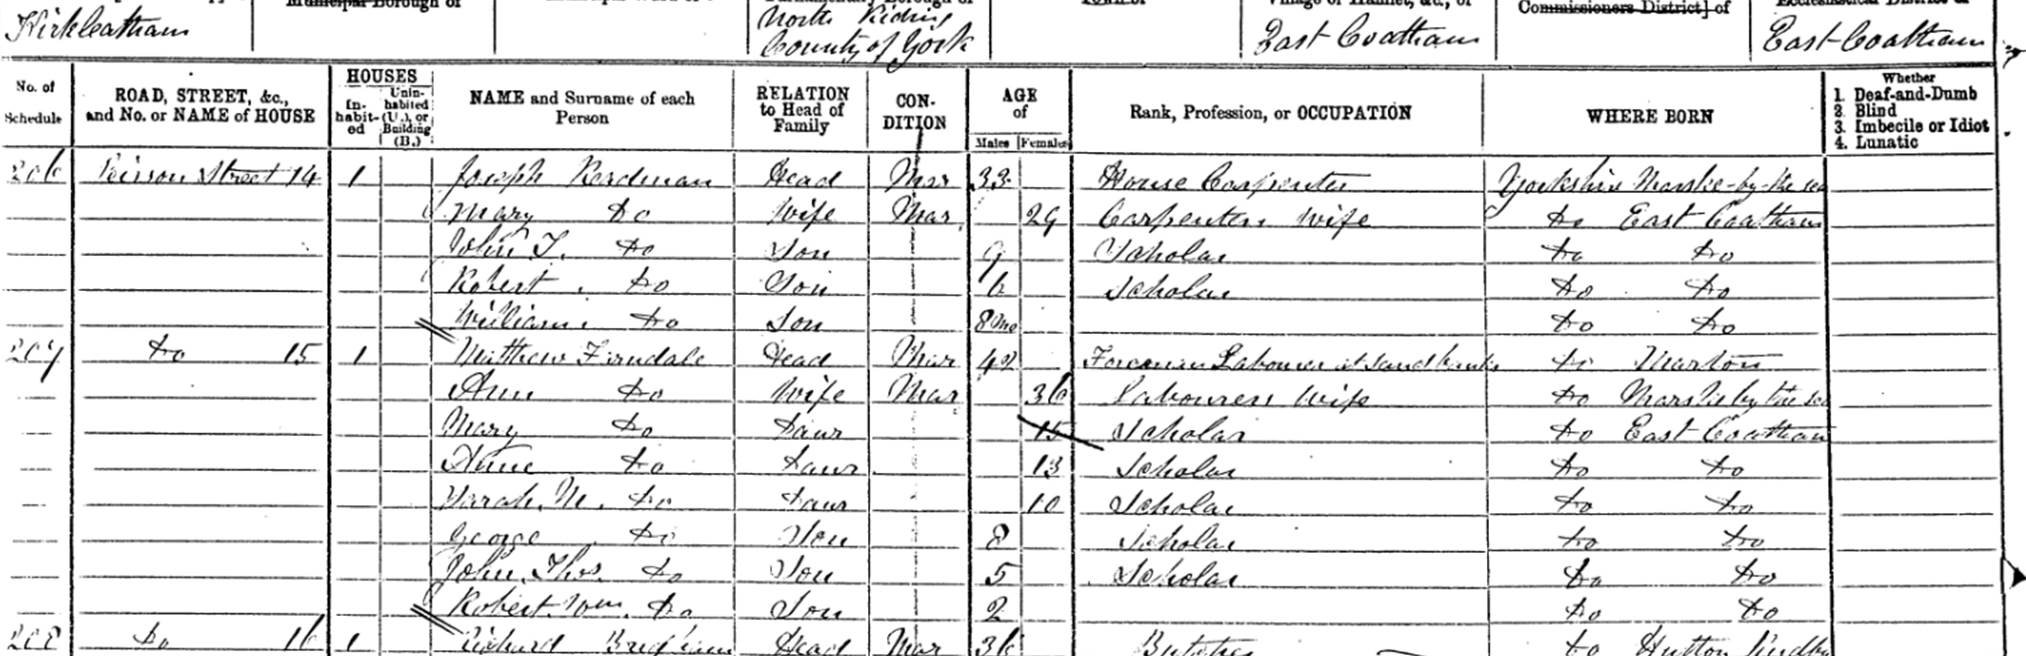 Municipal Borough of
Village or Hamlet, &c., of
Commissioners District] of
Kirkleatham
North Riding
County of York
East Coatham
East Coatham
No. of Schedule
ROAD, STREET, &c., and No. or NAME of HOUSE
HOUSES
In-habit-ed
Unin-habited (U.), or Building (B.)
NAME and Surname of each Person
RELATION to Head of Family
CON-DITION
AGE of
Males Females
Rank, Profession, or OCCUPATION
WHERE BORN
Whether
1. Deaf-and-Dumb
2. Blind
3. Imbecile or Idiot
4. Lunatic
206 Street 14 1 Joseph Readman Head Mar 33 House Carpenter Yorkshire Marske-by-the sea
Mary Do Wife Mar 29 Carpenters Wife Do East Coatham
John T. Do Son 9 Scholar Do Do
Robert Do Son 6 Scholar Do Do
William Do Son 8 Mo Do Do
207 Do 15 1 Matthew Farndale Head Mar 42 Foreman Labourer at Sand banks Do Marton
Ann Do Wife Mar 36 Labourers Wife Do Marske by the sea
Mary Do Daur 15 Scholar Do East Coatham
Anne Do Daur 13 Scholar Do Do
Sarah M. Do Daur 10 Scholar Do Do
George Do Son 8 Scholar Do Do
John Thos. Do Son 5 Scholar Do Do
Robert Wm. Do Son 2 Do Do
208 Do 16 1 Richard Head Mar 36 Butcher Do Hutton